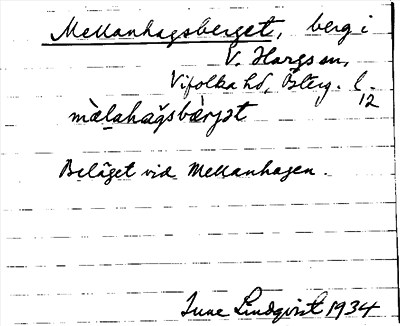 Mellanhagsberget, berg i
V. Hargs sn,
Vifolka hd, Österg. l.
12
màlahagsbærjət
Beläget vid Mellanhagen.
Sune Lindqvist 1934